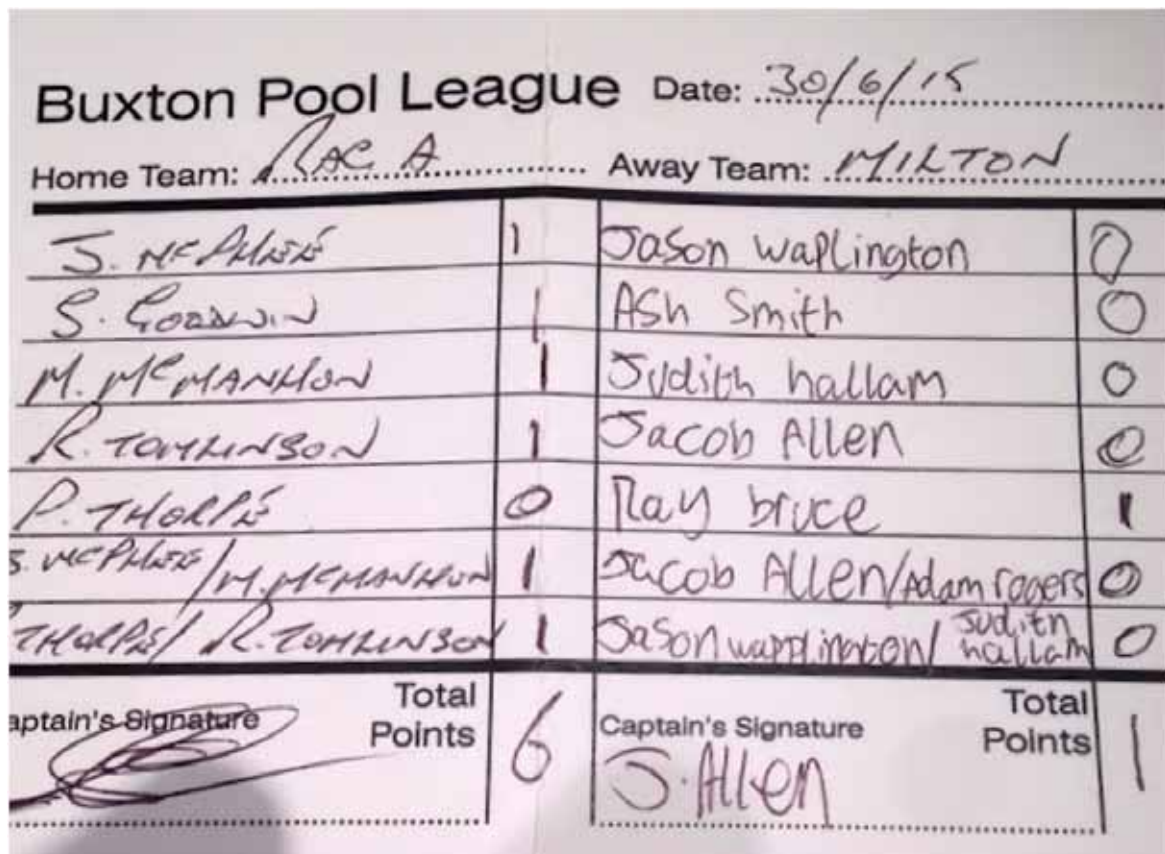 Buxton Pool League Date: 30/6/15
Home Team: RAC A Away Team: MILTON
J. McPHEE 1 Jason waplington 0
S. GOODWIN 1 Ash Smith 0
M. McMANHON 1 Judith hallam 0
R. TOMLINSON 1 Jacob Allen 0
P. THORPE 0 Ray bruce 1
J. McPHEE/M. McMANHON 1 Jacob Allen/Adam rogers 0
THORPE/ R. TOMLINSON 1 Jason wapplington/ Judith hallam 0
aptain's Signature Total Points 6 Captain's Signature Total Points 1
J. Allen